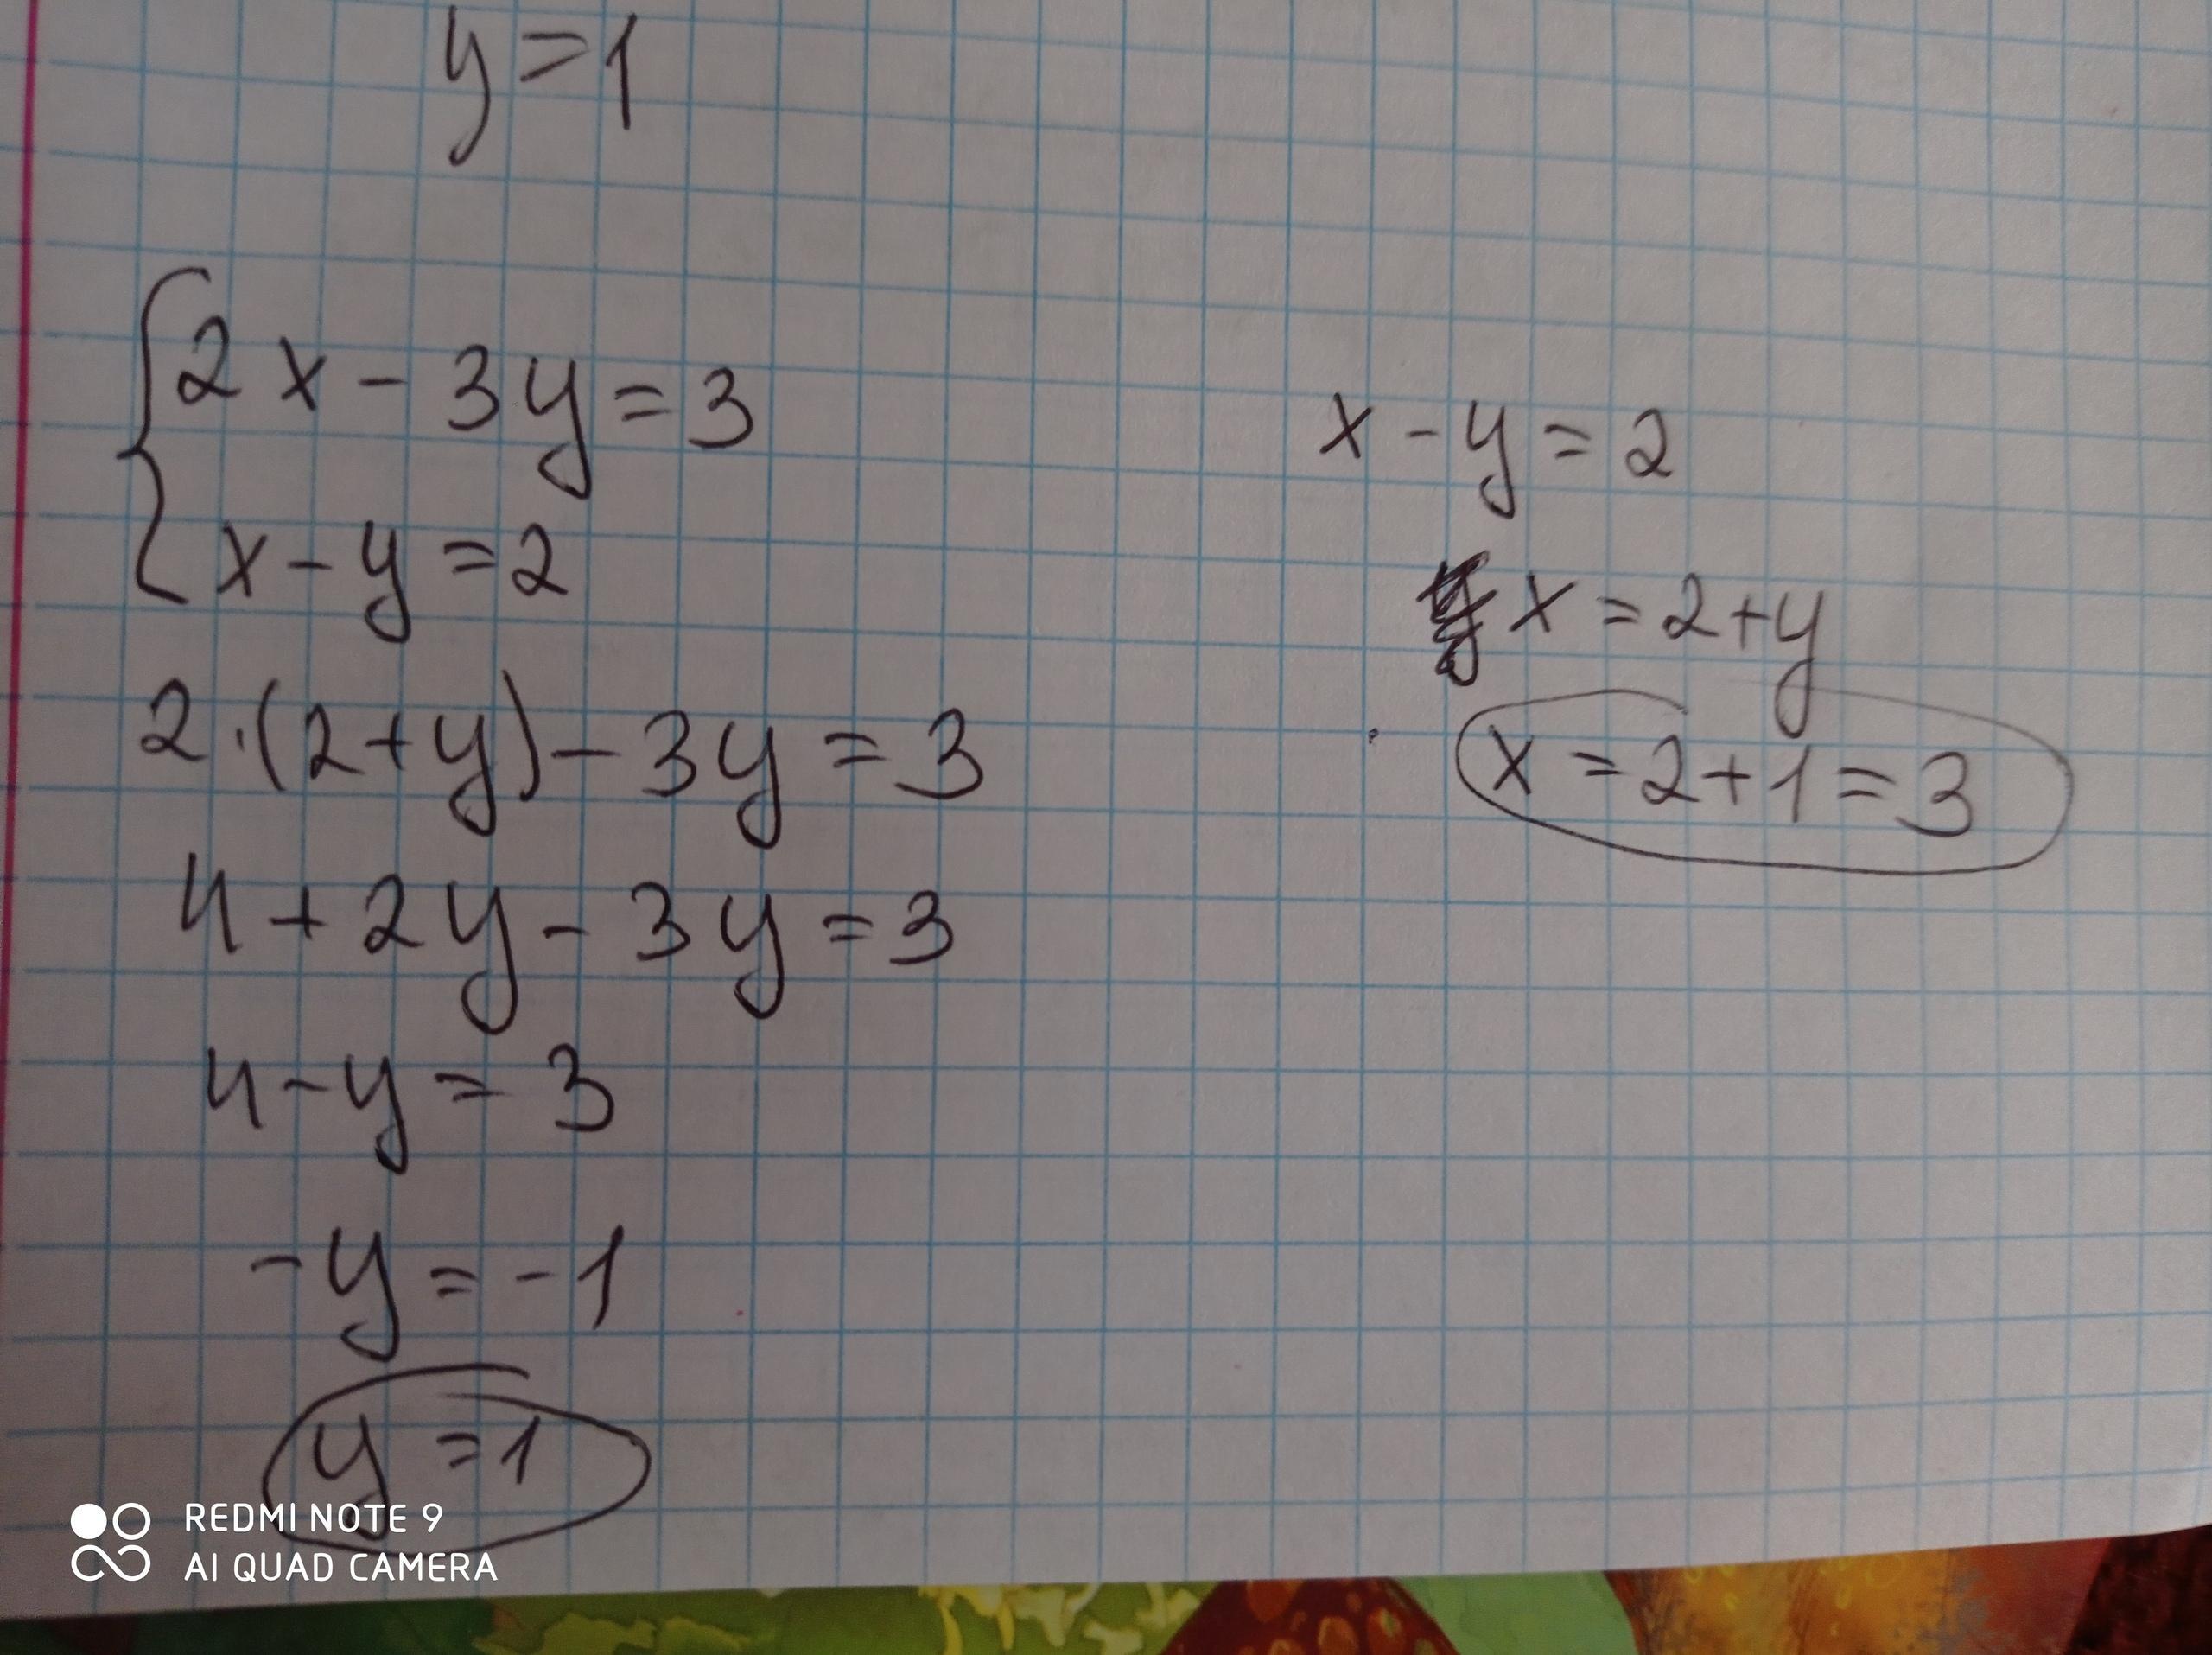 y=1
2x-3y=3
x-y=2
2·(2+y)-3y=3
4+2y-3y=3
4-y=3
-y=-1
y=1
x-y=2
x=2+y
x=2+1=3
REDMI NOTE 9
AI QUAD CAMERA